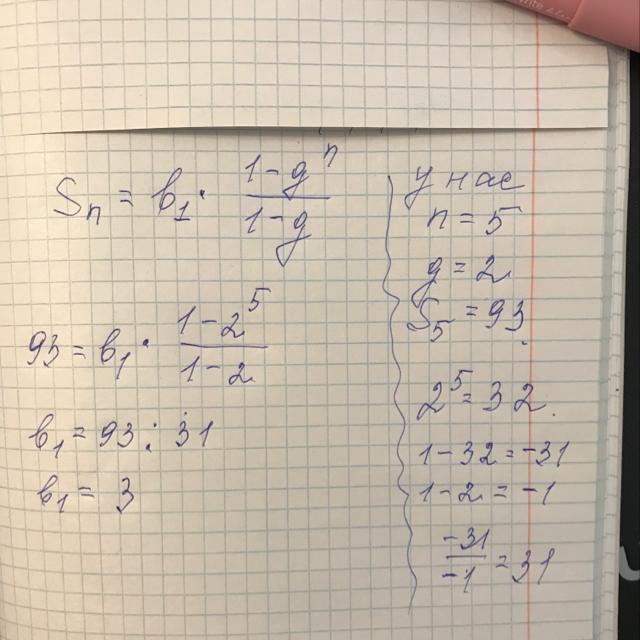 Sₙ = b₁ · (1 - qⁿ)/(1 - q)
93 = b₁ · (1 - 2⁵)/(1 - 2)
b₁ = 93 : 31
b₁ = 3
у нас
n = 5
q = 2
S₅ = 93.
2⁵ = 32.
1 - 32 = -31
1 - 2 = -1
-31/-1 = 31